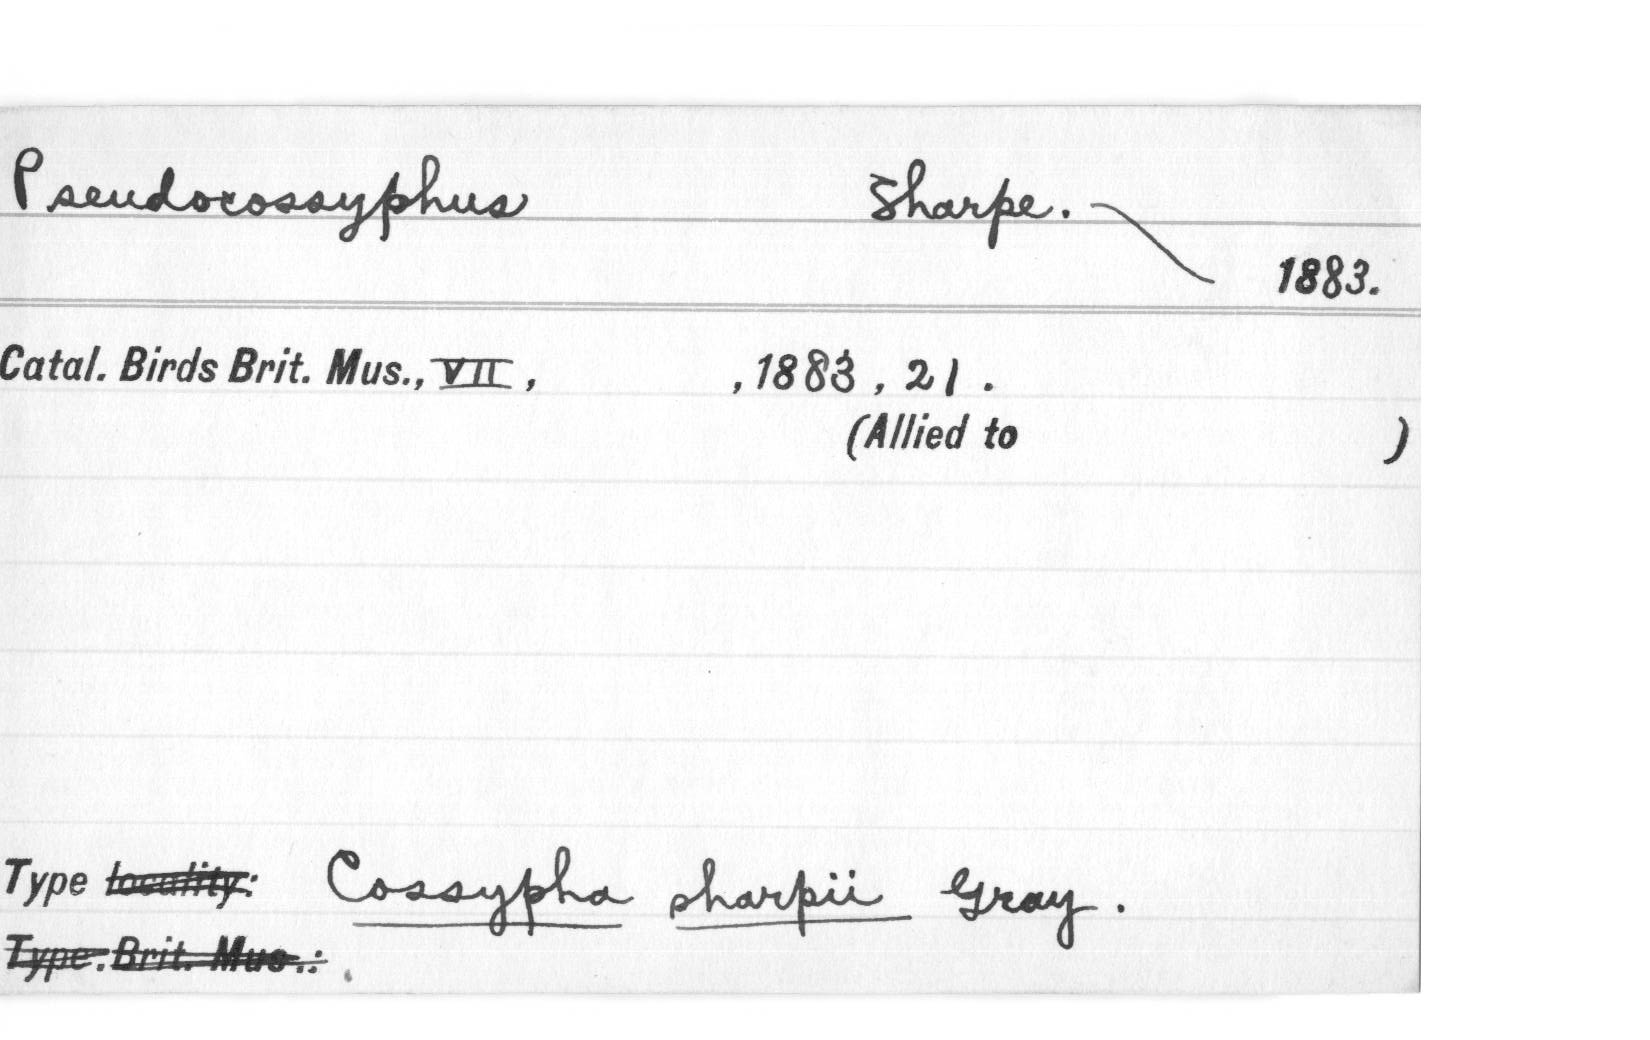 Pseudocossyphus Sharpe.
1883.
Catal. Birds Brit. Mus., VII, , 1883, 21.
(Allied to )
Type locality: Cossypha sharpii Gray.
Type. Brit. Mus.: